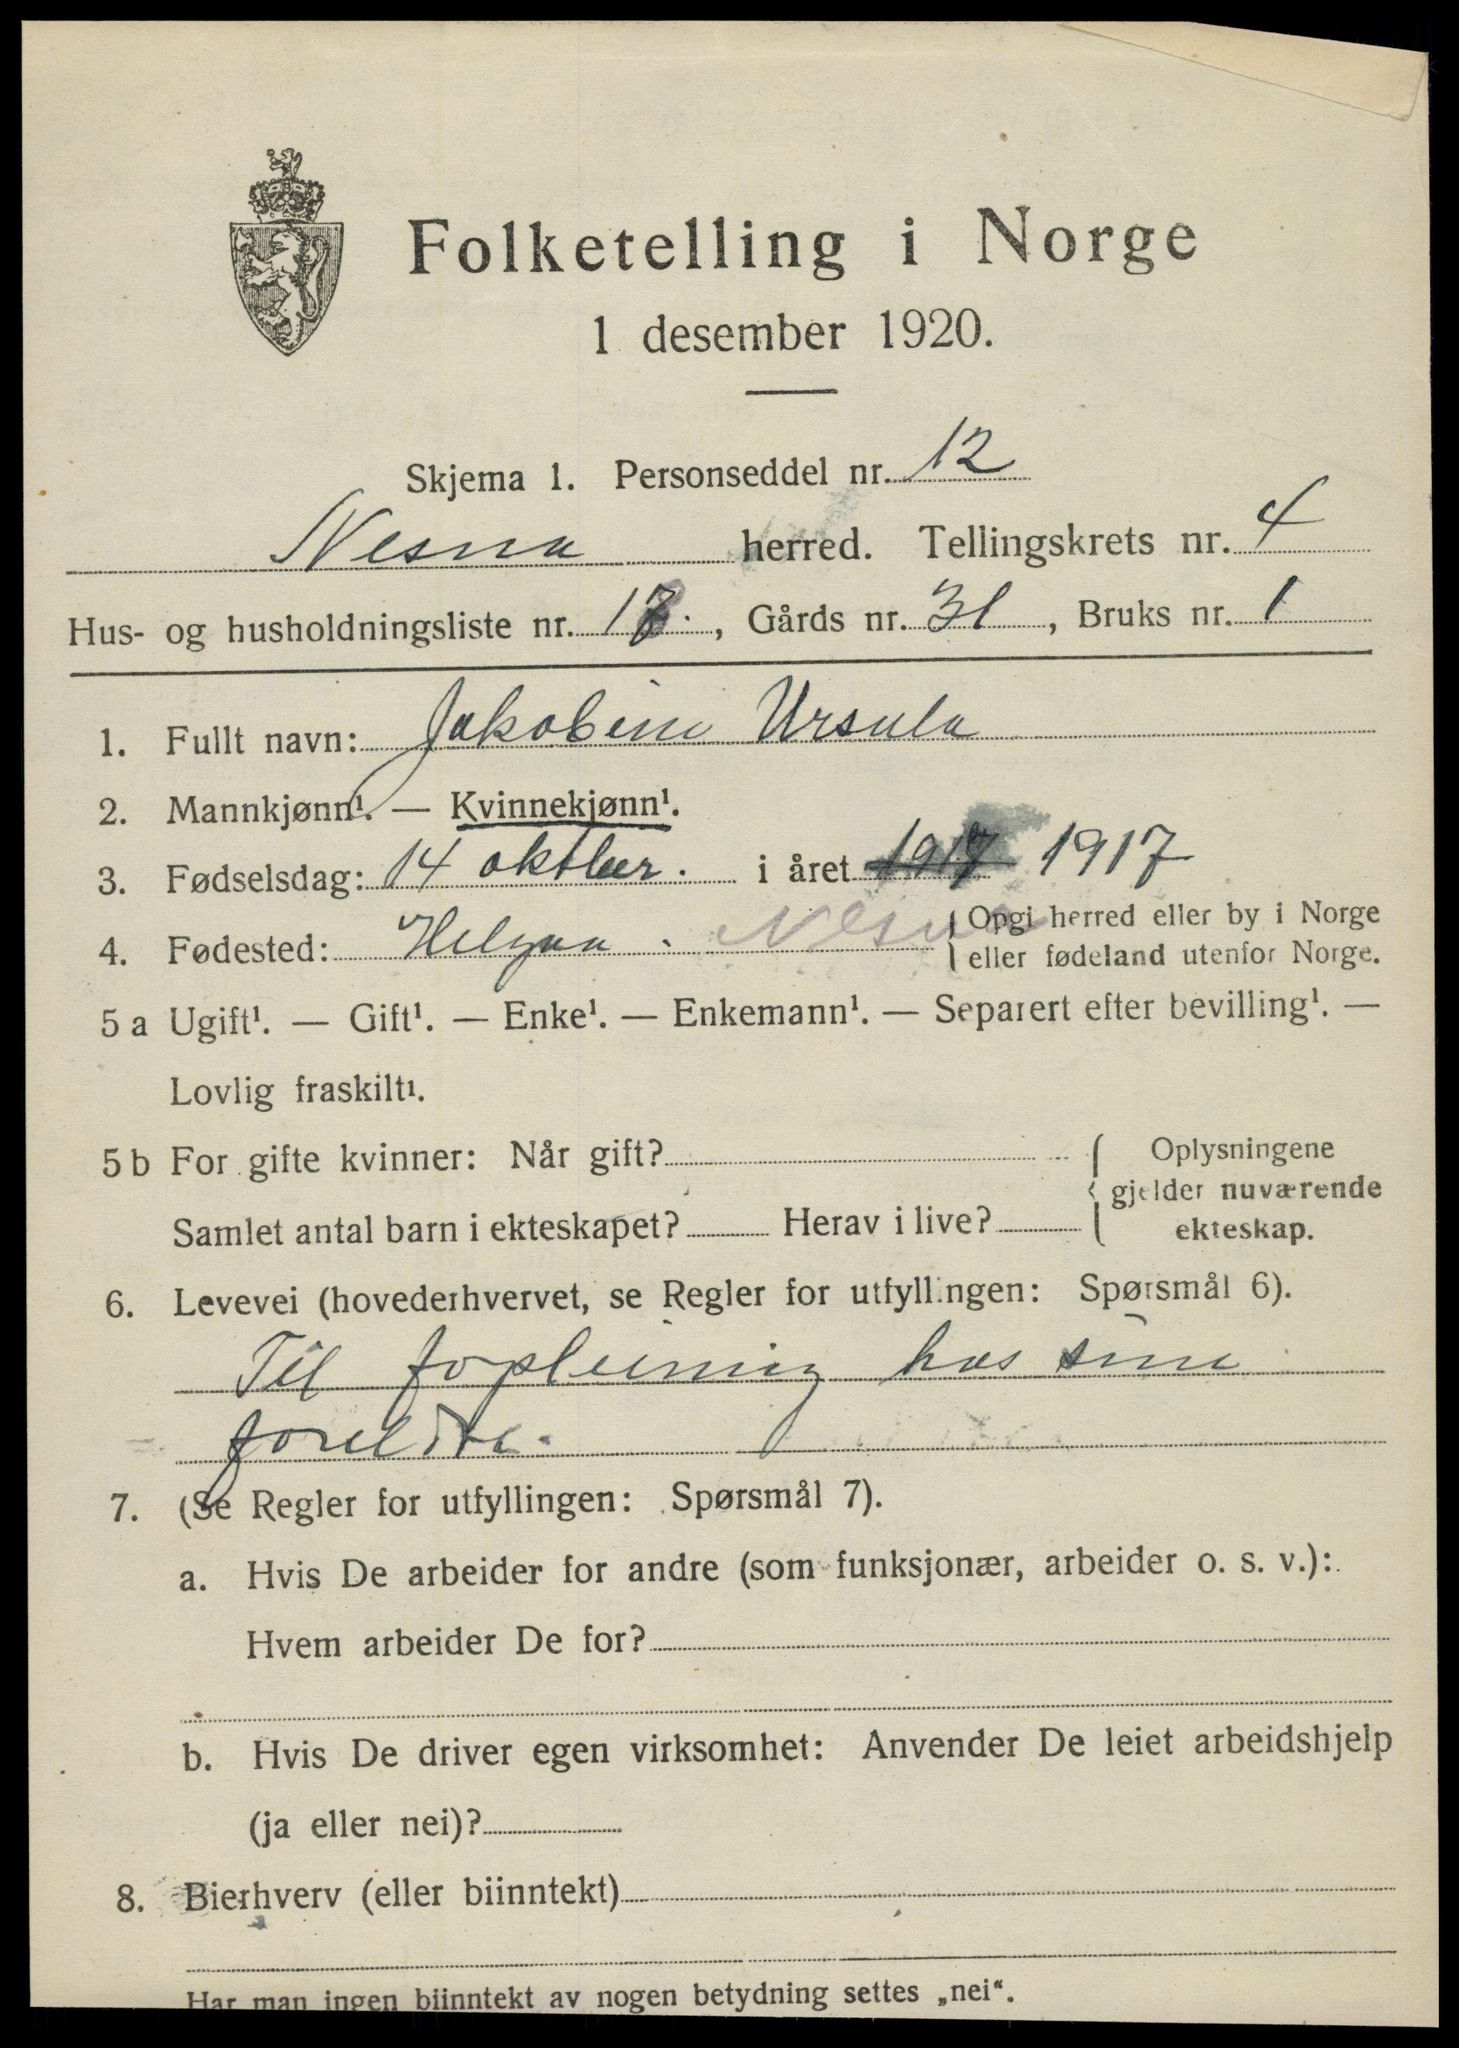 Folketelling i Norge
1 desember 1920.
Skjema 1. Personseddel nr. 12
Nesna herred. Tellingskrets nr. 4
Hus- og husholdningsliste nr. 18., Gårds nr. 31, Bruks nr. 1
1. Fullt navn: Jakobine Ursula
2. Mannkjønn¹. — Kvinnekjønn¹.
3. Fødselsdag: 14 oktber. i året 1917 1917
4. Fødested: Helgaa. Nesna { Opgi herred eller by i Norge
eller fødeland utenfor Norge.
5 a Ugift¹. — Gift¹. — Enke¹. — Enkemann¹. — Separert efter bevilling¹. —
Lovlig fraskilt¹.
5 b For gifte kvinner: Når gift? { Oplysningene
gjelder nuværende
Samlet antal barn i ekteskapet? Herav i live? ekteskap.
6. Levevei (hovederhvervet, se Regler for utfyllingen: Spørsmål 6).
Til fopleining hos sine
foreldre.
7. (Se Regler for utfyllingen: Spørsmål 7).
a. Hvis De arbeider for andre (som funksjonær, arbeider o. s. v.):
Hvem arbeider De for?
b. Hvis De driver egen virksomhet: Anvender De leiet arbeidshjelp
(ja eller nei)?
8. Bierhverv (eller biinntekt)
Har man ingen biinntekt av nogen betydning settes „nei“.